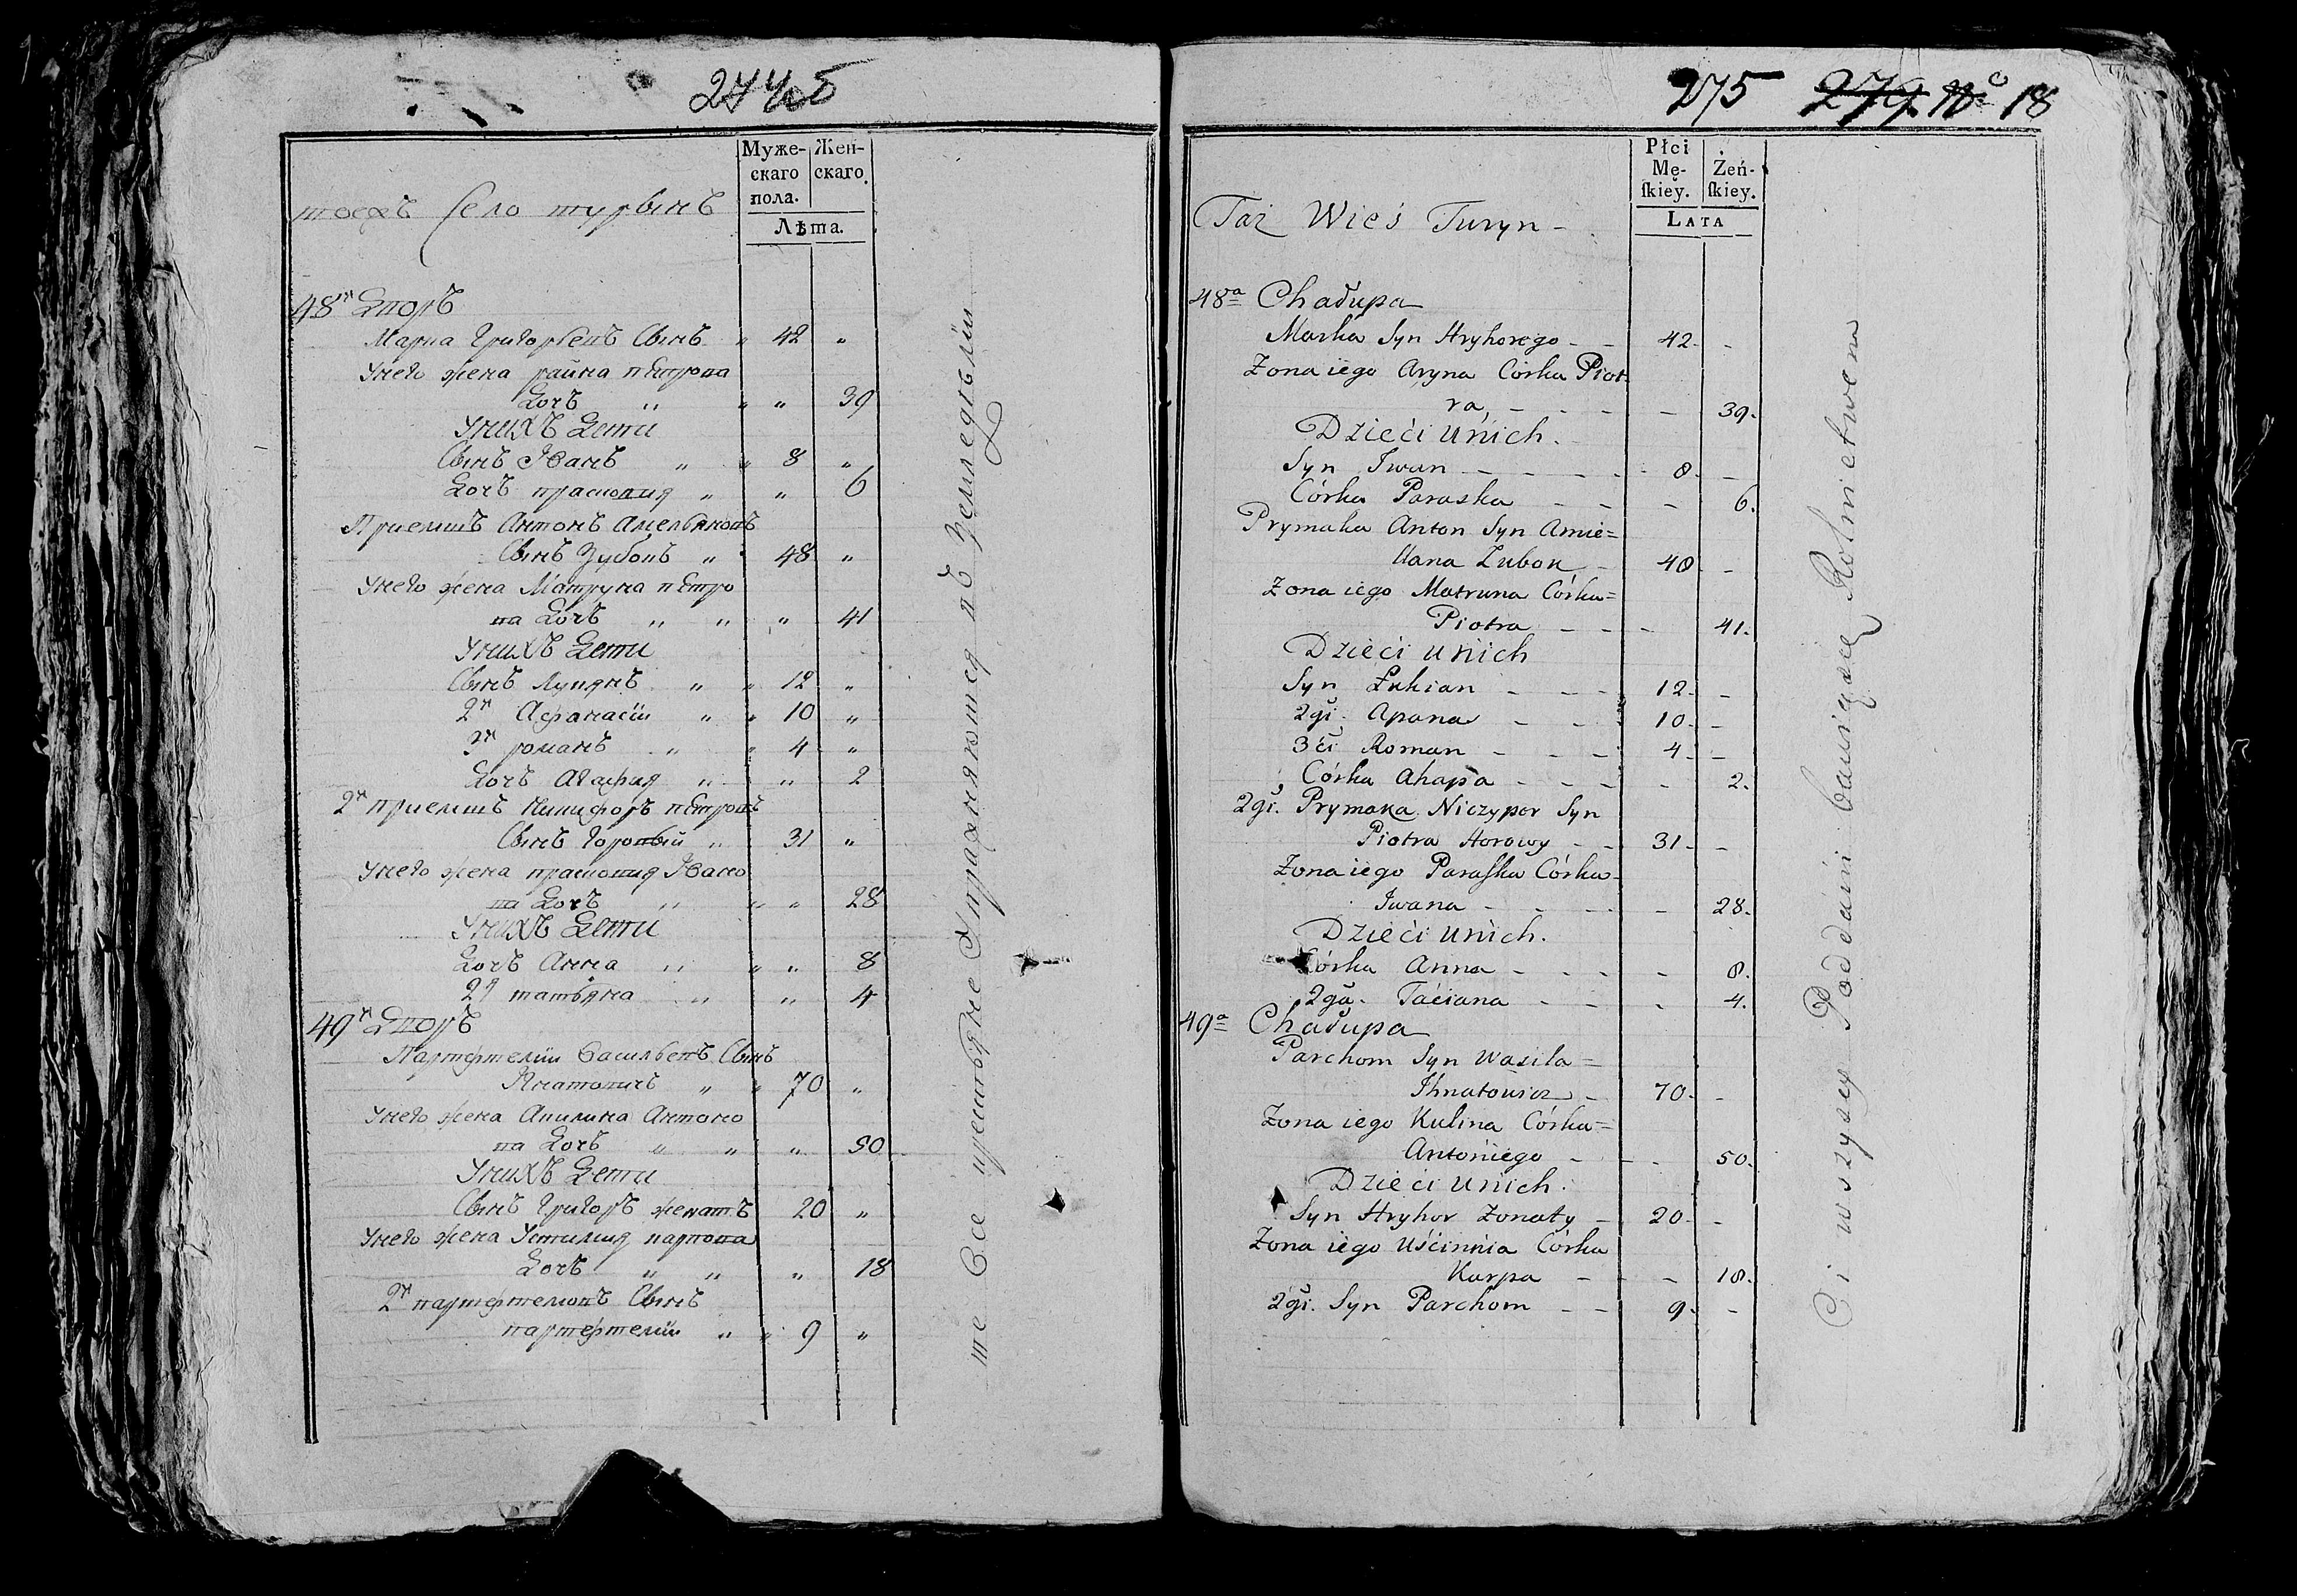 274 об
Муже-
скаго
пола.
Жен-
скаго.
Лѣта.
тоежъ Село турынъ
48й Дворъ
Марка Григорьевъ Сынъ " 42 "
Унего жена райна пЕтрова
Дочъ " " " 39
Унихъ Дети
Сынъ Иванъ " " 8 "
Дочъ прасковия " " 6
Приемшъ Антонъ Амельяновъ
Сынъ Зубовъ " 48 "
Унего жена Матруна пЕтро
ва Дочъ " " " 41
Унихъ Дети
Сынъ Лукянъ " " 12 "
2й Афанасiй " " 10 "
3й романъ " " 4 "
Дочъ Агафия " " 2
2й приемшъ Никифоръ пЕтровъ
Сынъ Горовый " 31 "
Унего жена прасковия Ивано
ва Дочъ " " " 28
Унихъ Дети
Дочъ Анна " " " 8
2я татьяна " " 4
49й Дворъ
Партфтелiй Васильевъ Сынъ
Игнатовичъ " " 70 "
Унего жена Акилина Антоно
ва Дочъ " " " 50
Унихъ Дети
Сынъ Григоръ женатъ 20 "
Унего жена Устиния карпова
Дочъ " " " 18
2й партфтелювъ Сынъ
партфтелiй " " 9 "
те Все крестьяне Упражняются въ Земледелiи
275 279 No 18
Płci
Mę-
ſkiey.
Żeń-
ſkiey.
LATA
Taż Wieś Turyn -
48a Chałupa
Marka Syn Hryhorego - - 42 - -
Żona iego Aryna Córka Piot-
ra, - - - - 39.
Dzieći unich.
Syn Iwan - - - - 8 - -
Córka Paraska - - - 6.
Prymaka Anton Syn Amie=
llana Zubon - 48 - -
Żona iego Matruna Córka=
Piotra - - - 41.
Dzieći unich
Syn Łukian - - - 12 - -
2gi. Apanas - - 10 - -
3ći Roman - - - 4 - -
Córka Ahapa - - - - 2.
2gi. Prymaka Niczypor Syn
Piotra Horowy - - 31 - -
Żona iego Paraſka Córka-
Iwana - - - - 28.
Dzieći unich.
Córka Anna - - - - 8.
2ga. Taćiana - - - 4.
49a Chałupa
Parchom Syn Wasila=
Ihnatowicz - 70 - -
Żona iego Kulina Córka=
Antoniego - - - 50.
Dzieći unich.
Syn Hryhor Żonaty - 20 - -
Żona iego Uśćinnia Córka
Karpa - - - 18.
2gi. Syn Parchom - - 9 - -
Ci wszyscy Poddańi bawią się Rolnictwem